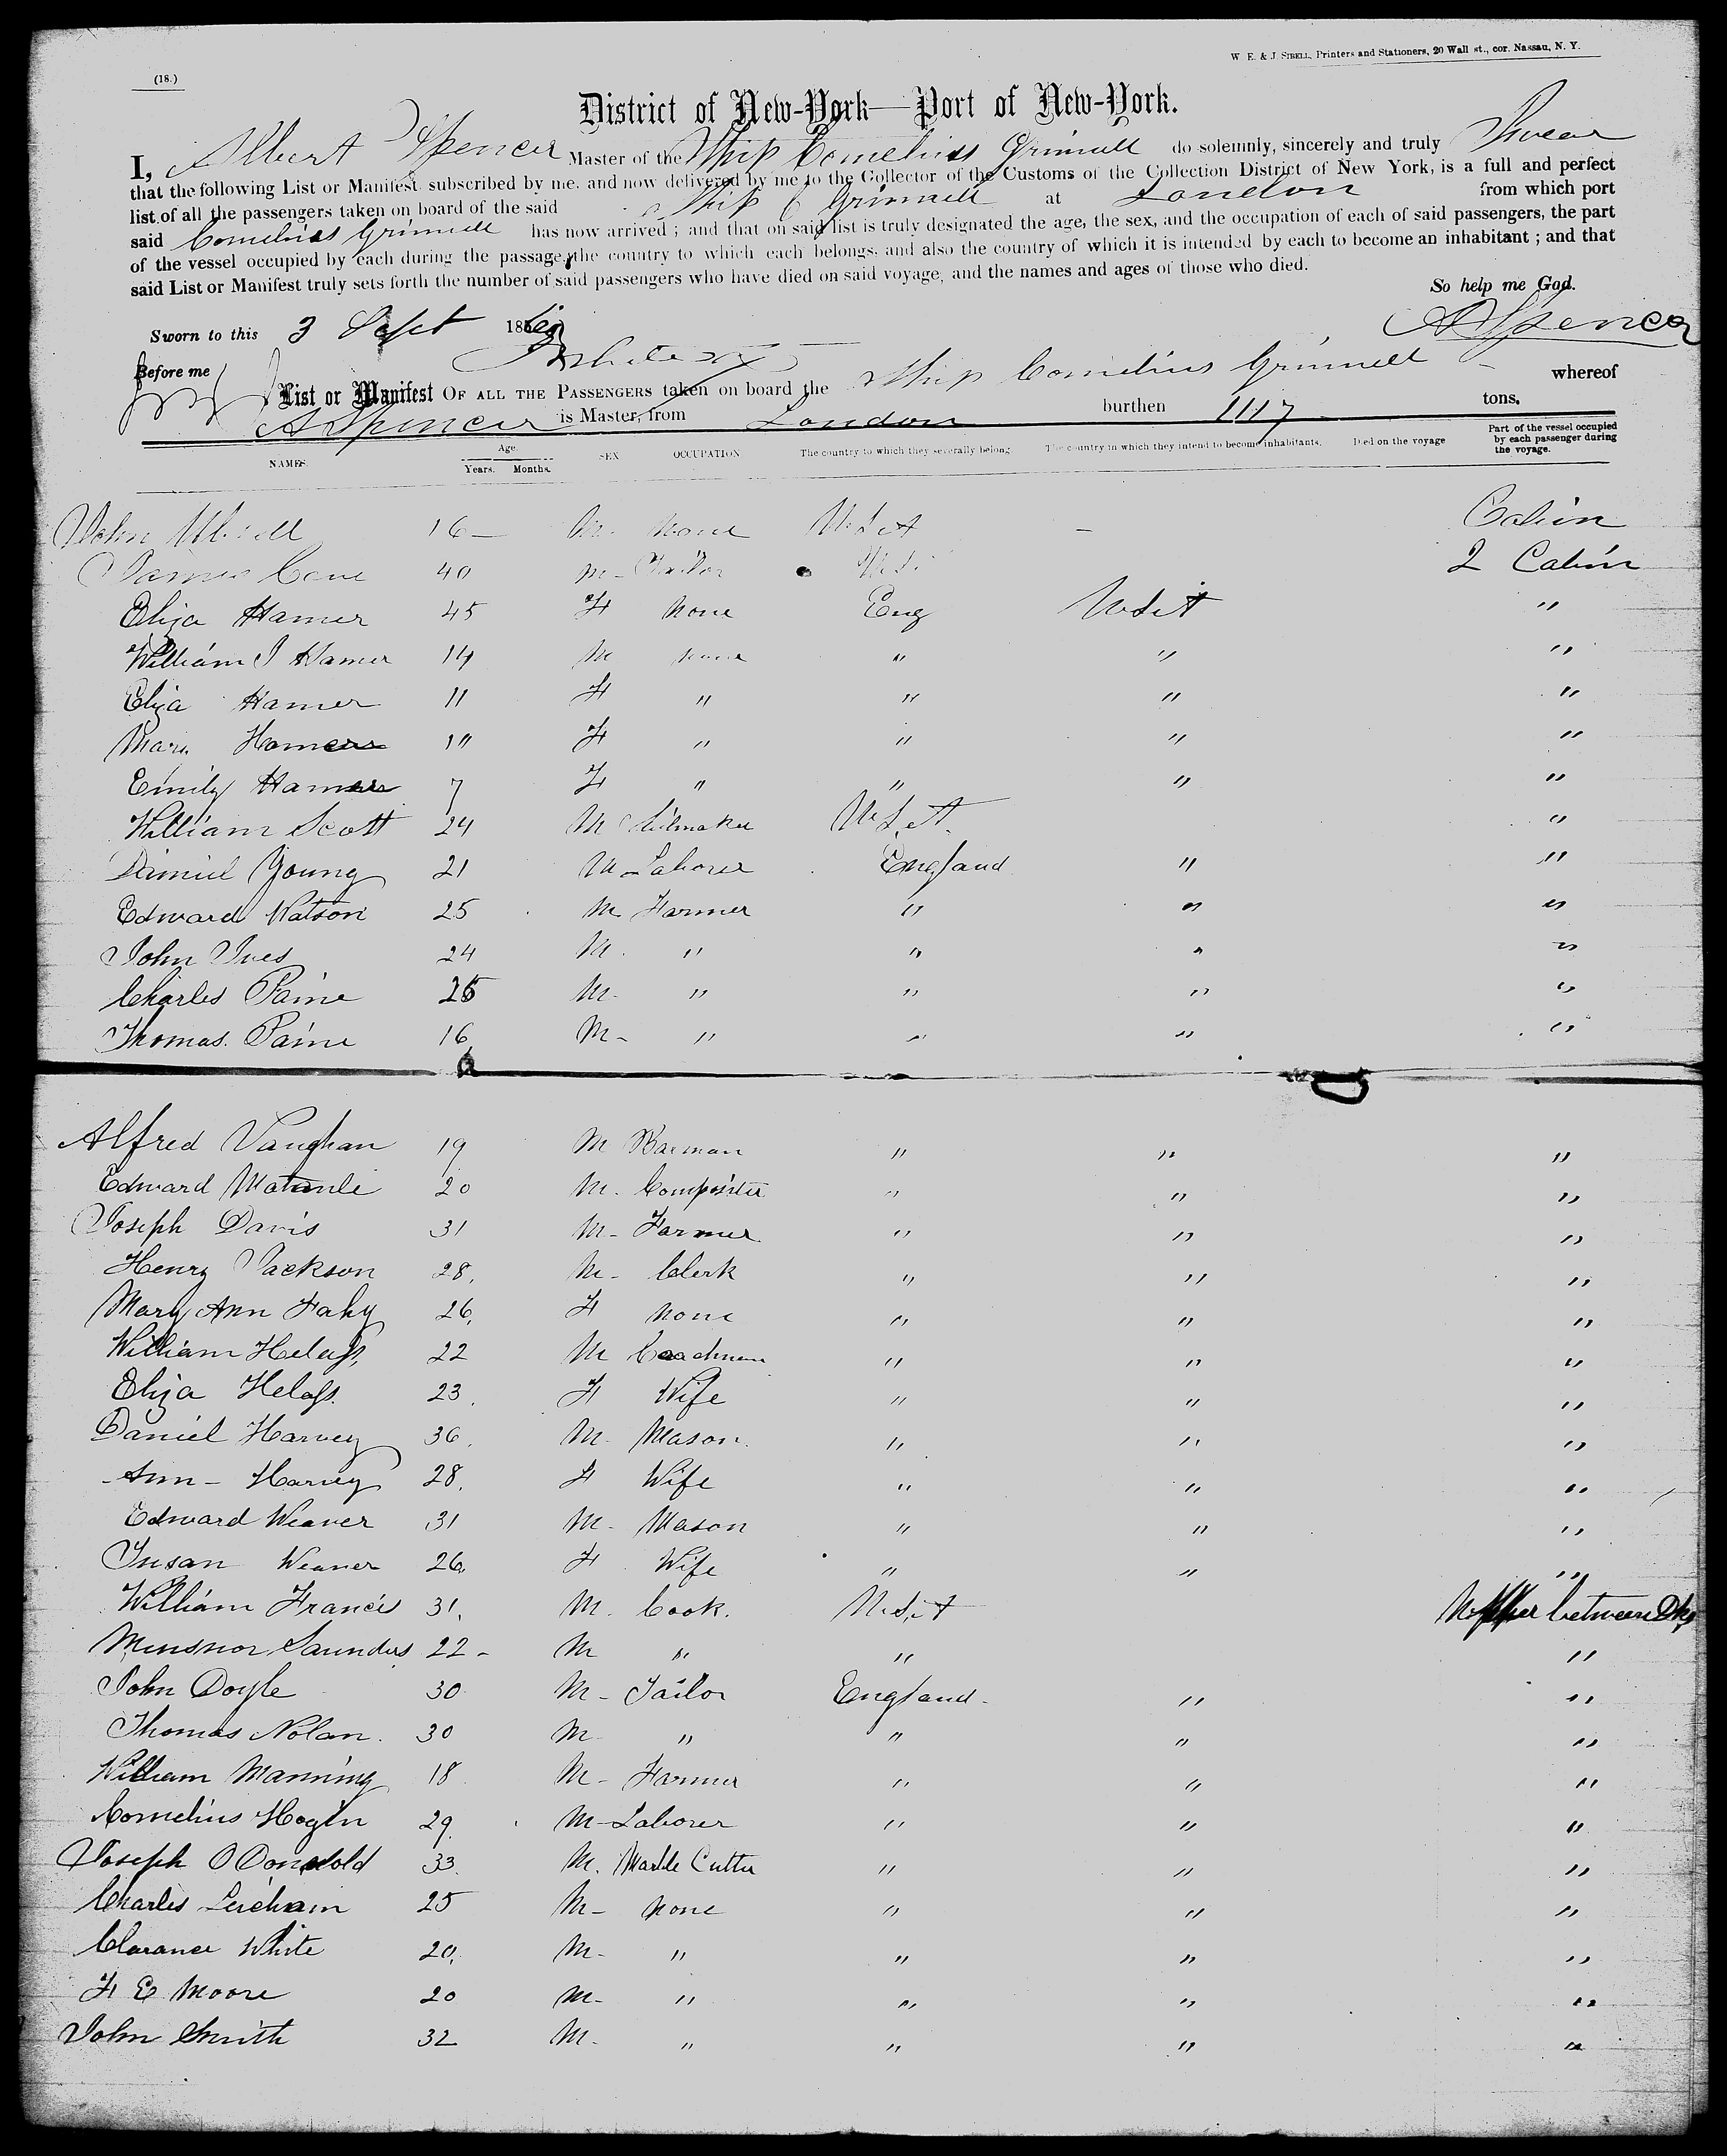 W. E. & J. SIBELL, Printers and Stationers, 20 Wall st., cor. Nassau, N. Y.
(18.)
District of New-York—Port of New-York.
I, Albert Spencer Master of the Ship Cornelius Grinnell do solemnly, sincerely and truly Swear
that the following List or Manifest subscribed by me, and now delivered by me to the Collector of the Customs of the Collection District of New York, is a full and perfect
list of all the passengers taken on board of the said Ship C Grinnell at London from which port
said Cornelius Grinnell has now arrived; and that on said list is truly designated the age, the sex, and the occupation of each of said passengers, the part
of the vessel occupied by each during the passage, the country to which each belongs, and also the country of which it is intended by each to become an inhabitant; and that
said List or Manifest truly sets forth the number of said passengers who have died on said voyage, and the names and ages of those who died.
So help me God.
Sworn to this 3 Sept 186
A Spencer
Before me
List or Manifest OF ALL THE PASSENGERS taken on board the Ship Cornelius Grinnell whereof
A Spencer is Master, from London burthen 1117 tons.
NAMES. Age. Years. Months. SEX OCCUPATION The country to which they severally belong. The country in which they intend to become inhabitants. Died on the voyage Part of the vessel occupied by each passenger during the voyage.
John 16 — M. None U.S.A — Cabin
James Cane 40 M - U.S. 2 Cabin
Eliza Hamer 45 F None Eng U.S.A "
William J Hamer 14 M none " " "
Eliza Hamer 11 F " " " "
Mary Hamer F " " " "
Emily Hamer 7 F " " " "
William Scott 24 M U.S.A. "
Daniel Young 21 M Laborer England " "
Edward Watson 25 M Farmer " " "
John Ives 24 M. " " " "
Charles Paine M. " " " "
Thomas. Paine 16 M - " " " "
Alfred Vaughan 19 M Barman " " "
Edward 20 M. Compositer " " "
Joseph Davis 31 M - Farmer " " "
Henry Jackson 28. M - Clerk " " "
Mary Ann Fahy 26. F None " " "
William 22 M Coachman " " "
Eliza 23. F Wife " " "
Daniel Harvey 36. M. Mason. " " "
Ann - Harvey 28. F Wife " " "
Edward Weaver 31 M. Mason " " "
Susan Weaver 26. F Wife " " "
William Francis 31. M. Cook. U.S.A Upper between Dks
Saunders 22 - M " " "
John Doyle 30 M - Tailor England - " "
Thomas Nolan. 30 M " " " "
William Manning 18 M - Farmer " " "
Cornelius Hogin 29. M - Laborer " " "
Joseph 33. M. Marble Cutter " " "
Charles 25 M - None " " "
Clarance White 20. M - " " " "
F E Moore 20 M - " " " "
John Smith 32 M - " " " "